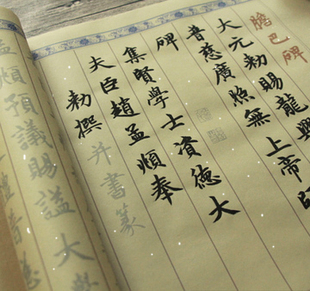 膽巴碑
大元勑賜龍興
普慈廣照無上帝師
碑
集賢學士資德大
夫臣趙孟頫奉
勑撰并書篆
孟頫預議賜謚大
普慈